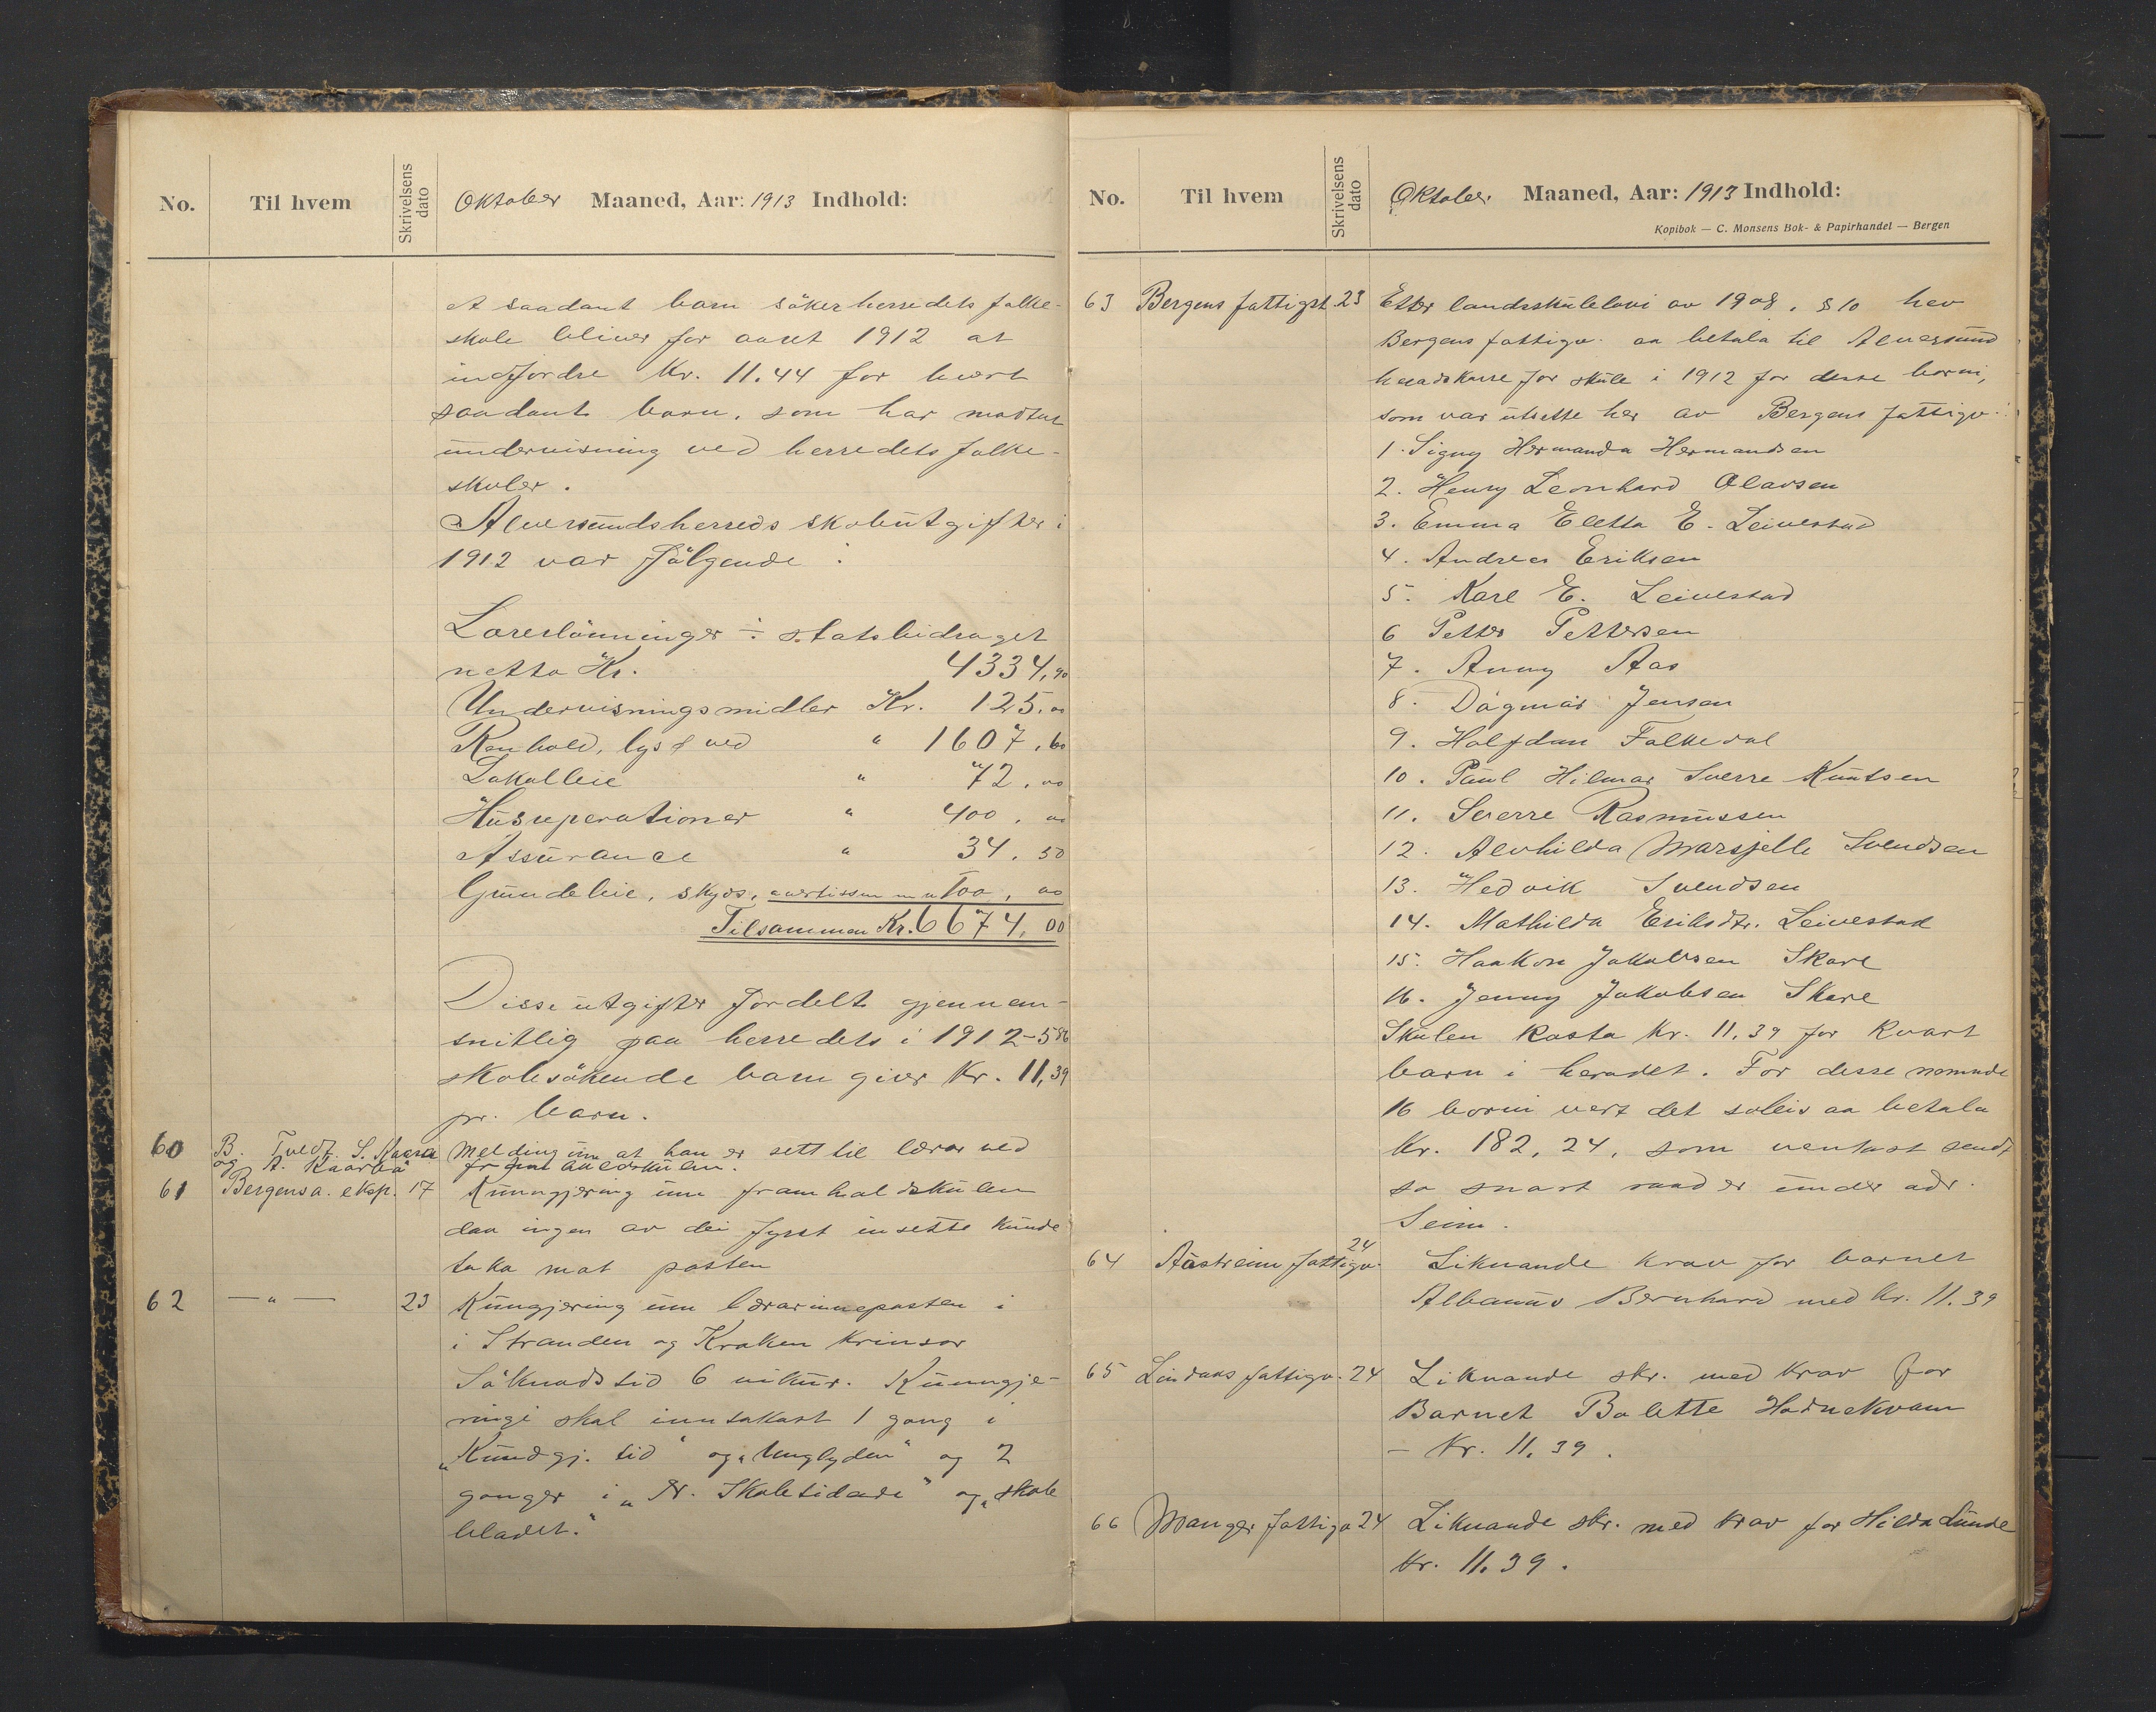 No. Til hvem Skrivelsens dato Oktober Maaned, Aar: 1913 Indhold:
At saadant barn söker herredets folke-
skole bliver for aaret 1912 at
indfordre Kr. 11.44 for hvert
saadant barn, som har modtat
undervisning ved herredets folke-
skoler.
Alversundsherreds skoleutgifter i
1912 var fölgende:
Lærerlönninger ÷ statsbidraget
netto Kr. 4334,90
Undervisningsmidler Kr. 125.00
Renhold, lys & ved " 1607.60
Lokalleie " 72.00
Husreperationer " 400.00
Assurance " 34.50
Grundeleie, skyds, avertissem m. 100,00
Tilsammen Kr. 6674.00
Disse utgifter fordelt gjennem-
snitlig paa herredets i 1912 - 586
skolesökende barn giver Kr. 11,39
pr. barn.
60 B. Tvedt. S. Kaarea Melding um at han er sett til lærar ved
og A. Kaarbø framhaldskulen.
61 Bergens a. eksp. 17 Kunngjering um framhaldskulen
daa ingen av dei fyrst insette kunde
taka mot posten
62 — " — 23 Kungjering um lærarinneposten i
i Stranden og Kraken krinsar
Söknadstid 6 vikur. Kunngje-
ringi skal inntakast 1 gong i
„Kundgj. tid" og „Unglyden" og 2
gonger i „N. Skuletidende" og „skole
bladet."
No. Til hvem Skrivelsens dato Oktober Maaned, Aar: 1913 Indhold:
Kopibok — C. Monsens Bok- & Papirhandel — Bergen
63 Bergens fattigst. 23 Etter landsskulelovi av 1908, § 10 hev
Bergens fattigv. aa betala til Alversund
heradskasse for skule i 1912 for desse borni,
som var utsette her av Bergens fattigv.:
1. Signy Hermanda Hermandsen
2. Henry Leonhard Olavsen
3. Emma Eletta E. Leivestad
4. Andreas Eriksen
5. Karl E. Leivestad
6 Petter Pettersen
7. Anny Aas
8. Dagmar Jensen
9. Halfdan Falkedal
10. Paul Hilmar Sverre Knutsen
11. Sverre Rasmussen
12. Alvhilda Marsjelle Svendsen
13. Hedvik Svendsen
14. Mathilda Eriksdtr. Leivestad
15. Haakon Jakobsen Skare
16. Jenny Jakobsen Skare
Skulen kosta Kr. 11.39 for kvart
barn i heradet. For desse nemnde
16 borni vert det soleis aa betala
Kr. 182,24, som ventast sendt
so snart raad er under adr.
Seim.
64 Aastreim fattigv. 24 Liknande krav for barnet
Albanus Bernhard med kr. 11.39
65 Lindaas fattigv. 24 Liknande skr. med krav for
Barnet Bolette Hodnekvam
- Kr. 11.39.
66 Manger fattigv 24 Liknande skr. med krav for Hilda Lunde
kr. 11.39.